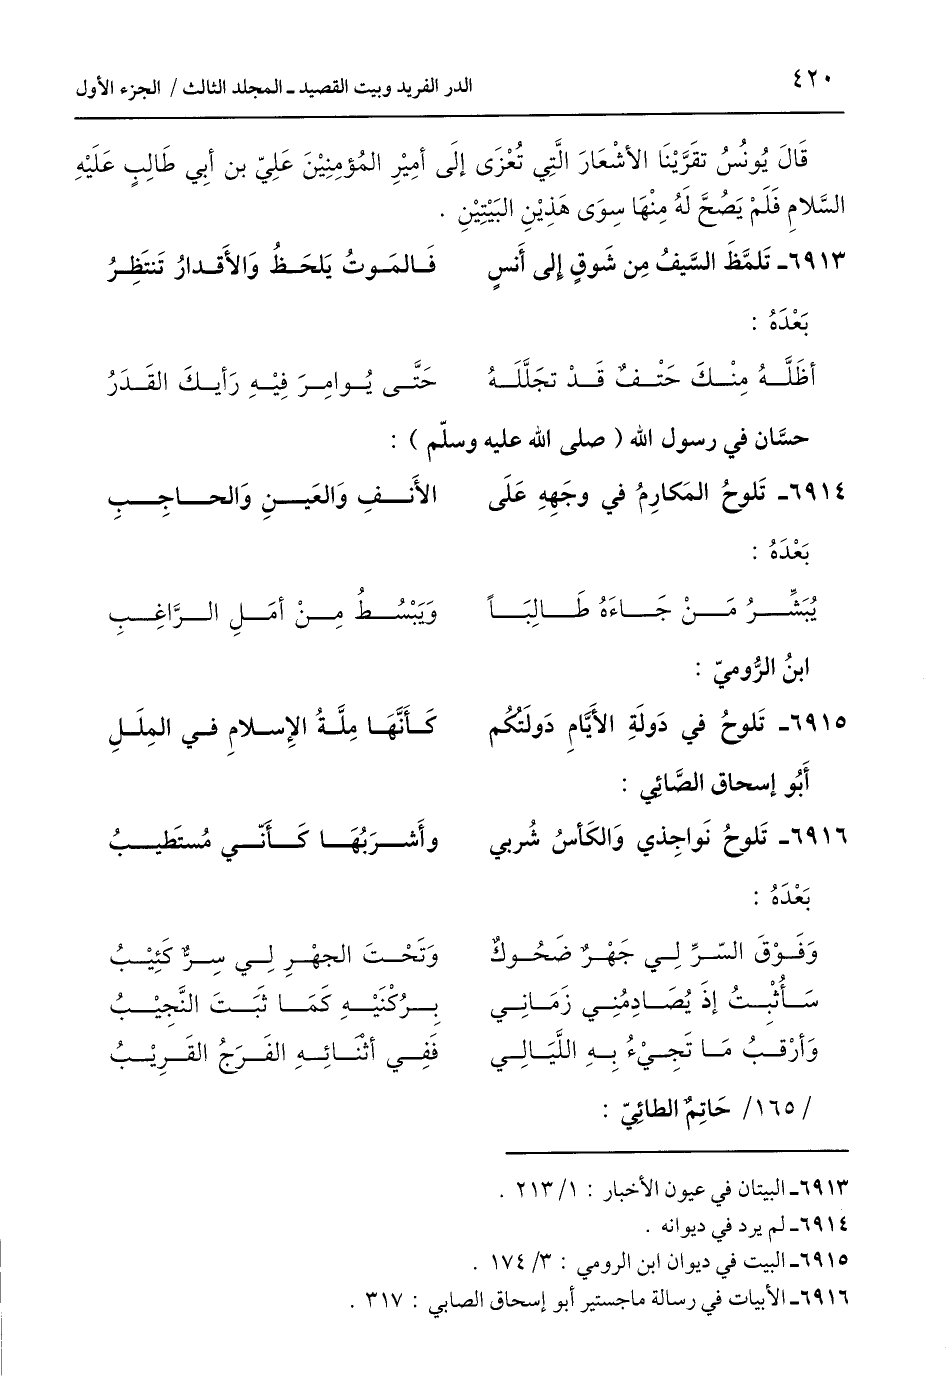 ٤٢٠ الدر الفريد وبيت القصيد ـ المجلد الثالث / الجزء الأول
قَالَ يُونُسُ تقرَّيْنَا الأشْعَارَ الَّتِي تُعْزَى إلَى أمِيْرِ المُؤمِنِيْنَ عَلِيّ بن أبي طَالِبٍ عَلَيْهِ
السَّلام فَلَمْ يَصُحَّ لَهُ مِنْهَا سِوَى هَذِيْنِ البَيْتِيْنِ .
٦٩١٣ـ تَلمَّظَ السَّيفُ مِن شَوقٍ إلى أَنسٍ فَالمَوتُ يَلحَظُ وَالأَقدارُ تَنتَظِرُ
بَعْدَهُ :
أظَلَّهُ مِنْكَ حَتْفٌ قَدْ تجَلَّلَهُ حَتَّى يُوامِرَ فِيْهِ رَأيكَ القَدَرُ
حسَّان في رسول الله ( صلى الله عليه وسلّم ) :
٦٩١٤ـ تَلوحُ المَكارِمُ في وجَهِهِ عَلَى الأَنفِ وَالعَينِ وَالحاجِبِ
بَعْدَهُ :
يُبَشِّرُ مَنْ جَاءَهُ طَالِبَاً وَيَبْسُطُ مِنْ أمَلِ الرَّاغِبِ
ابنُ الرُّوميّ :
٦٩١٥ـ تَلوحُ في دَولَةِ الأَيَّامِ دَولَتُكُم كَأَنَّهَا مِلَّةُ الإِسلامِ في المِلَلِ
أَبُو إسحاق الصَّائِي :
٦٩١٦ـ تَلوحُ نَواجِذي وَالكَأسُ شُربي وأَشرَبُهَا كَأَنّي مُستَطيبُ
بَعْدَهُ :
وَفَوْقَ السِّرِّ لِي جَهْرٌ ضَحُوكٌ وَتَحْتَ الجهْرِ لِي سِرٌّ كَئِيْبُ
سَأُثْبتُ إذْ يُصَادِمُنِي زَمَانِي بِرُكْنَيْهِ كَمَا ثَبَتَ النَّجِيْبُ
وَأرْقبُ مَا تَجِيْءُ بِهِ اللَّيَالِي فَفِي أثْنَائِهِ الفَرَجُ القَرِيْبُ
/ ١٦٥/ حَاتِمٌ الطائِيّ :
٦٩١٣ـ البيتان في عيون الأخبار : ١/ ٢١٣ .
٦٩١٤ـ لم يرد في ديوانه .
٦٩١٥ـ البيت في ديوان ابن الرومي : ٣/ ١٧٤ .
٦٩١٦ـ الأبيات في رسالة ماجستير أبو إسحاق الصابي : ٣١٧ .